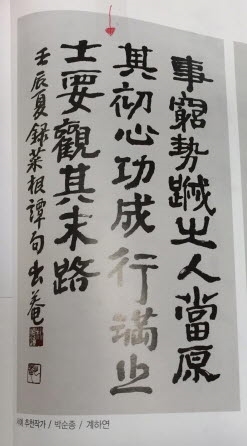 事窮勢蹴之人當原
其初心功成行滿之
士要觀其末路
壬辰夏錄菜根譚句 出菴
추천작가 / 박순종 / 계하연